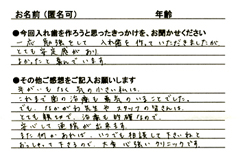 お名前(匿名可) 年齢
●今回入れ歯を作ろうと思ったきっかけを、お聞かせください
一応勉強として 入れ歯を作っていただきましたが
とても安定感があり
よかったと喜んでいます。
●その他ご感想をご記入お願いします
これまで歯の治療も最高のいきることでした。
でも、ながかわ先生や スタッフの皆さんは、
とても親切で、治療も的確なので、
安心して通院が出来ます。
また何かあれば、いつでも相談して下さいねと
おっしゃって下さるので、大変心強いクリニックです。